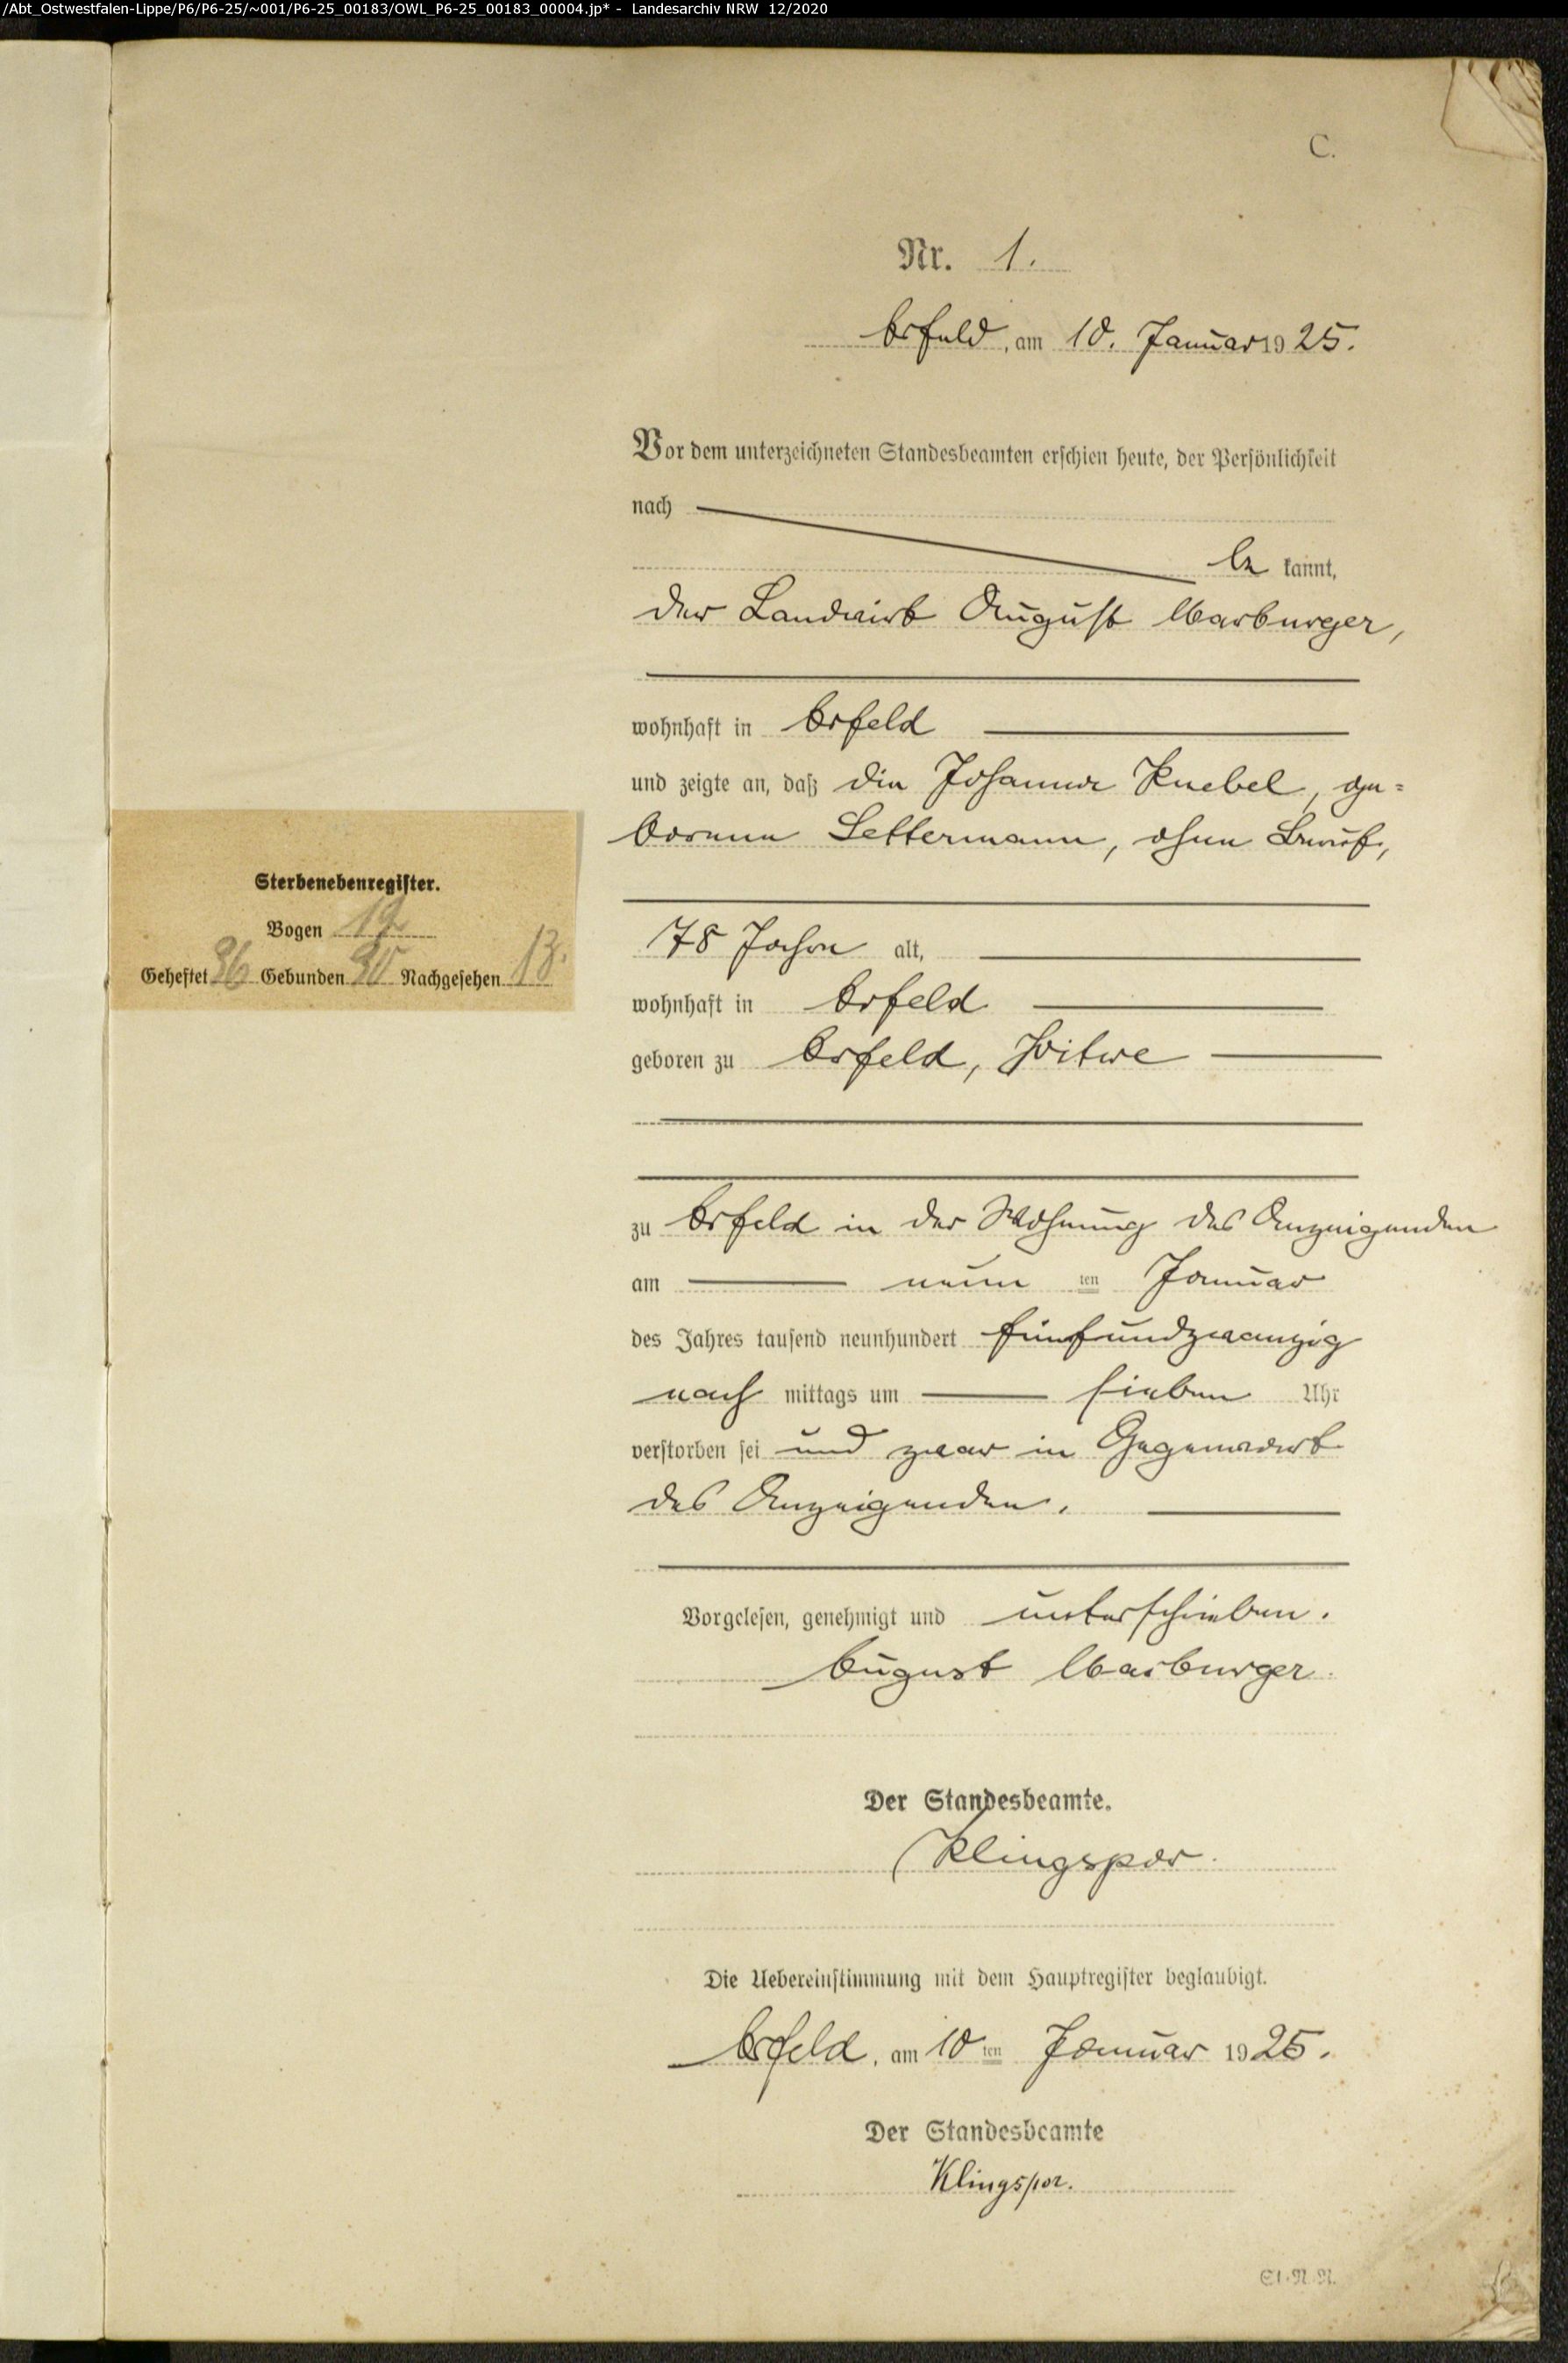 /Abt_Ostwestfalen-Lippe/P6/P6-25/~001/P6-25_00183/OWL_P6-25_00183_00004.jp* - Landesarchiv NRW 12/2020
C.
Nr. 1.
Erfeld, am 10. Januar 1925.
Vor dem unterzeichneten Standesbeamten erschien heute, der Persönlichkeit
nach
be kannt,
der Landwirt August Marburger,
wohnhaft in Erfeld
und zeigte an, daß die Johanne Knebel, ge=
borene Settermann, ohne Beruf,
78 Jahre alt,
wohnhaft in Erfeld
geboren zu Erfeld, Witwe
zu Erfeld in der Wohnung des Anzeigenden
am neun ten Januar
des Jahres tausend neunhundert fünfundzwanzig
nach mittags um sieben Uhr
verstorben sei und zwar in Gegenwart
des Anzeigenden.
Vorgelesen, genehmigt und unterschrieben.
August Marburger.
Der Standesbeamte.
Klingspor.
Die Uebereinstimmung mit dem Hauptregister beglaubigt.
Erfeld, am 10 ten Januar 1925.
Der Standesbeamte
Klingspor.
Sterbenebenregister.
Bogen
Geheftet Gebunden Nachgesehen 13.